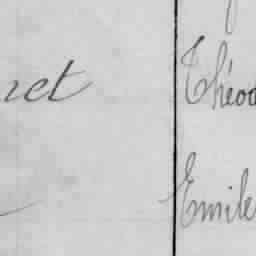 net Théod
Emile